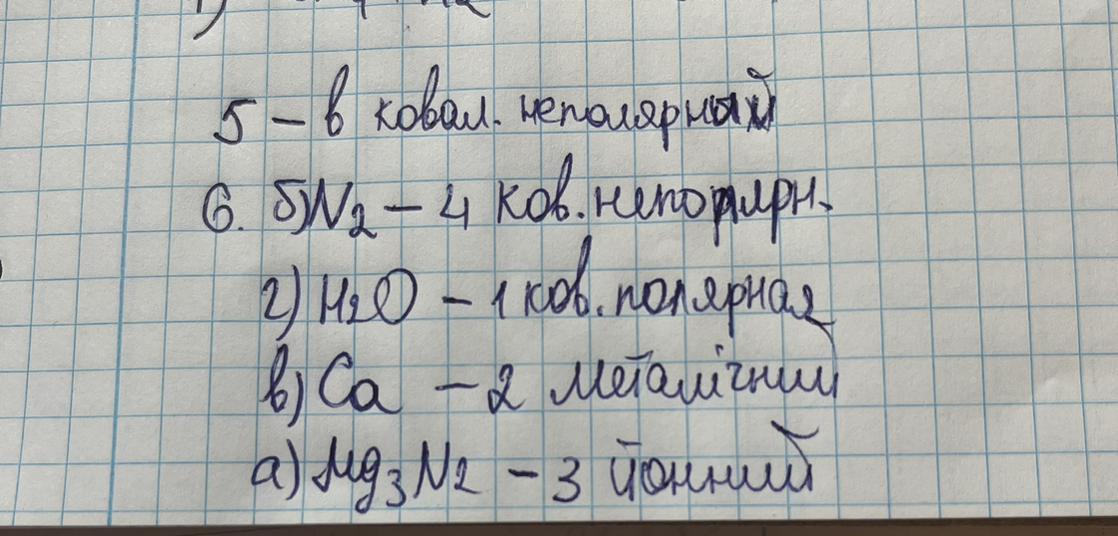 5 – в ковал. неполярный
6. б) N2 – 4 ков. неполярн.
г) H2O – 1 ков. полярная
в) Ca – 2 металічний
а) Mg3N2 – 3 йонний